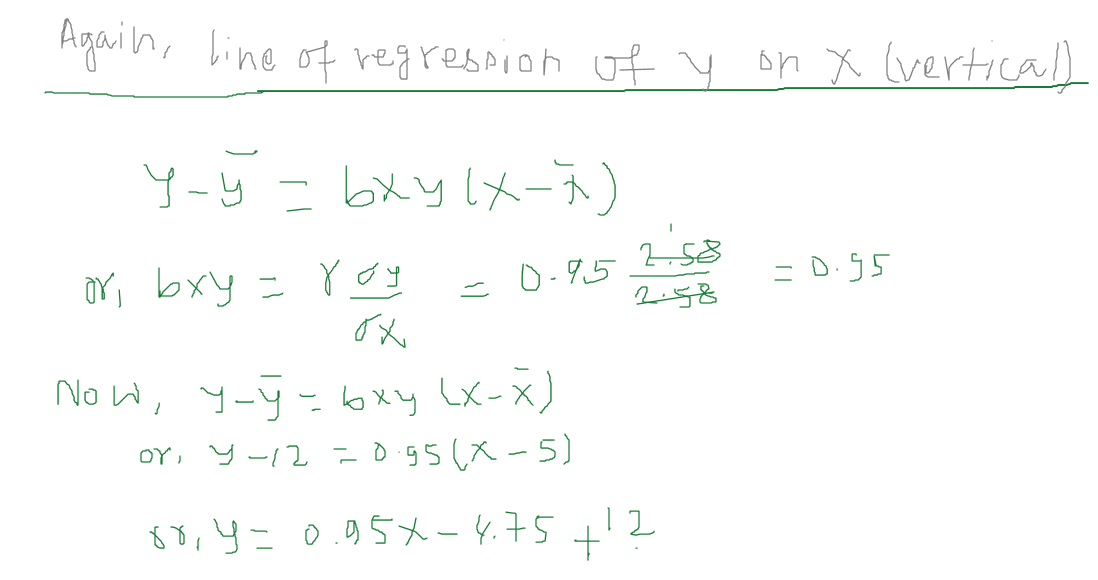 Again, line of regression of y on x (vertical)
y - ȳ = bxy (x - x̄)
or, bxy = r σy/σx = 0.95 2.58/2.58 = 0.95
Now, y - ȳ = bxy (x - x̄)
or, y - 12 = 0.95 (x - 5)
or, y = 0.95x - 4.75 + 12